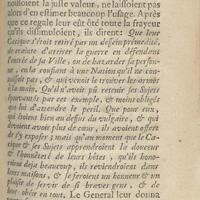 noissoient la juste valeur, ne laissoient pas
alors d'en estimer beaucoup l'usage. Après
que ce regale leur eût ôté toute la frayeur
qu'ils dissimuloient, ils dirent: Que leur
Cacique s'étoit retiré par un dessein prémedité,
de crainte d'attirer la guerre en défendant
l'entrée de sa Ville, ou de hazarder sa person-
ne, en la confiant à une Nation qu'il ne con-
noissoit pas, & qui venoit le trouver les armes
à la main. Qu'il n'avoit pû retenir ses Sujets
épouvantez par cet exemple, & moins obligez
que lui d'attendre le peril. Que pour eux,
qui étoient bien au dessus du vulgaire, & qui
avoient plus de cœur, ils avoient offert
de s'y exposer: mais qu'au moment que le Ca-
cique & ses Sujets apprendroient la douceur
& l'honnêteté de leurs hôtes, qu'ils hono-
roient déja beaucoup, ils retiendroient dans
leurs maisons, & se feroient un honneur & un
plaisir de servir de si braves gens, & de
leur obéir en tout. Le General leur donna